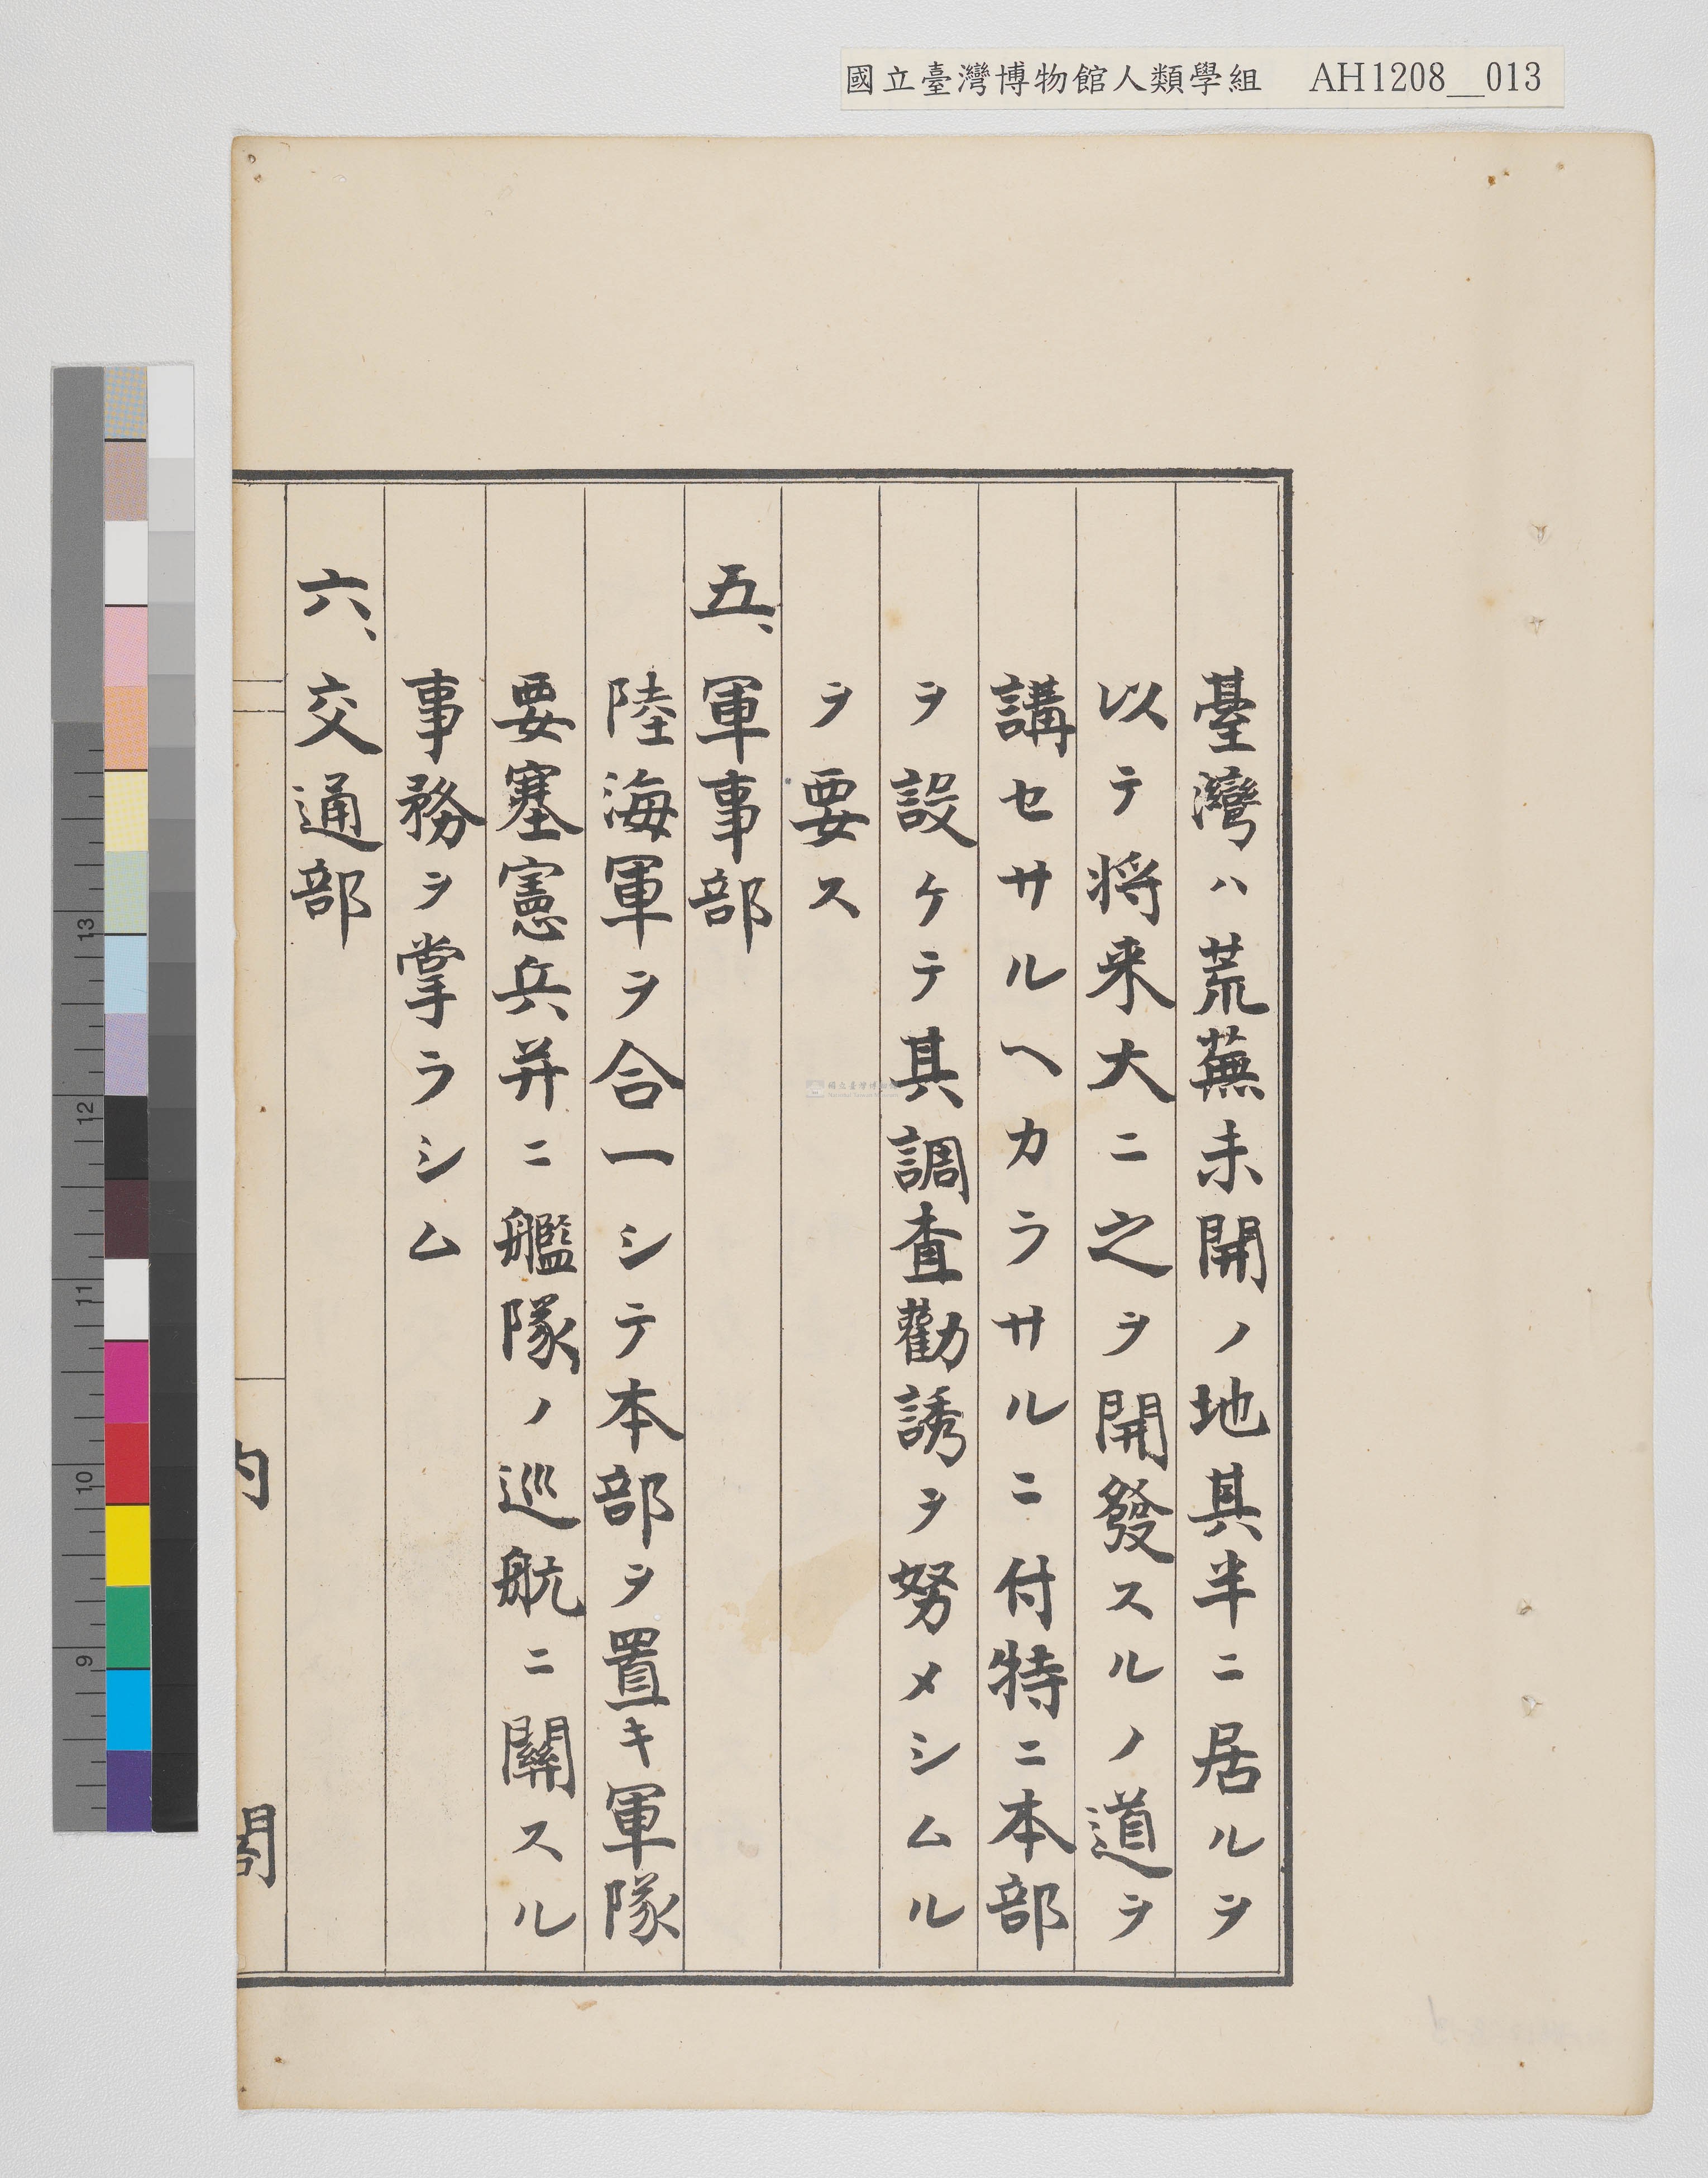 國立臺灣博物館人類學組 AH1208__013
臺灣ハ荒蕪未開ノ地其半ニ居ルヲ
以テ将来大ニ之ヲ開發スルノ道ヲ
講セサルヘカラサルニ付特ニ本部
ヲ設ケテ其調査勸誘ヲ努メシムル
ヲ要ス
五、軍事部
陸海軍ヲ合一シテ本部ヲ置キ軍隊
要塞憲兵并ニ艦隊ノ巡航ニ關スル
事務ヲ掌ラシム
六、交通部
内閣
13
12
11
10
9